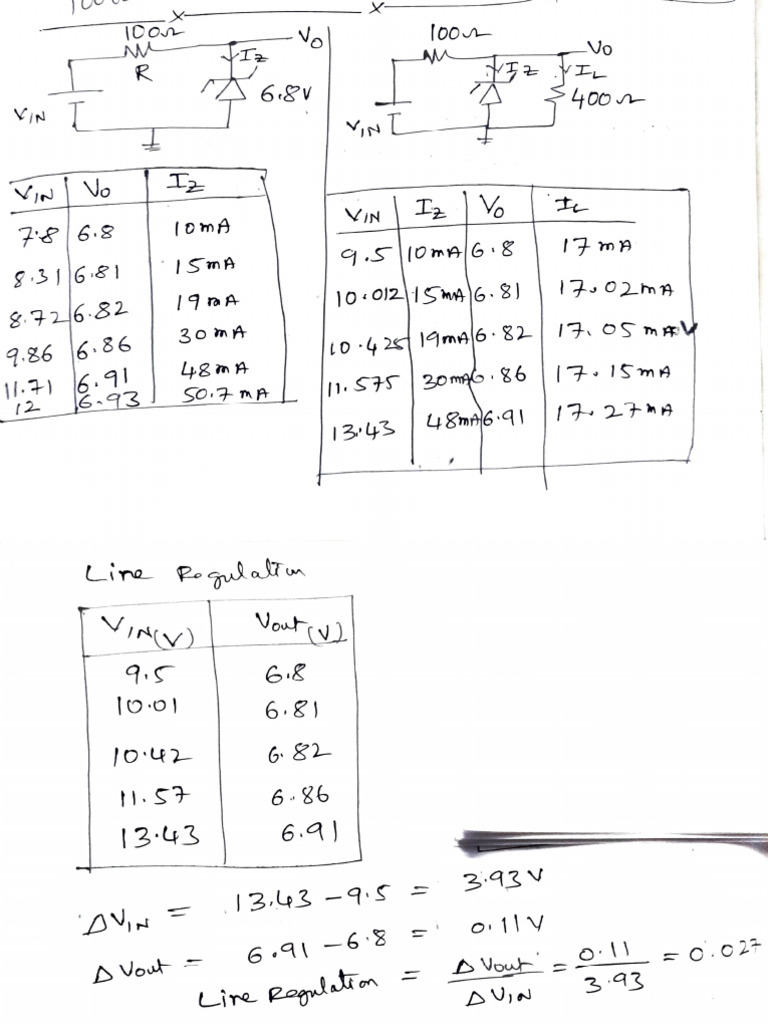 100Ω
V₀
I_Z
R
6.8V
V_IN
100Ω
V₀
I_Z
I_L
400Ω
V_IN
V_IN V₀ I_Z
7.8 6.8 10mA
8.31 6.81 15mA
8.72 6.82 19mA
9.86 6.86 30mA
11.71 6.91 48mA
12 6.93 50.7mA
V_IN I_Z V₀ I_L
9.5 10mA 6.8 17mA
10.012 15mA 6.81 17.02mA
10.425 19mA 6.82 17.05mA
11.575 30mA 6.86 17.15mA
13.43 48mA 6.91 17.27mA
Line Regulation
V_IN(V) Vout(V)
9.5 6.8
10.01 6.81
10.42 6.82
11.57 6.86
13.43 6.91
ΔV_IN = 13.43 - 9.5 = 3.93V
ΔVout = 6.91 - 6.8 = 0.11V
Line Regulation = ΔVout/ΔV_IN = 0.11/3.93 = 0.027